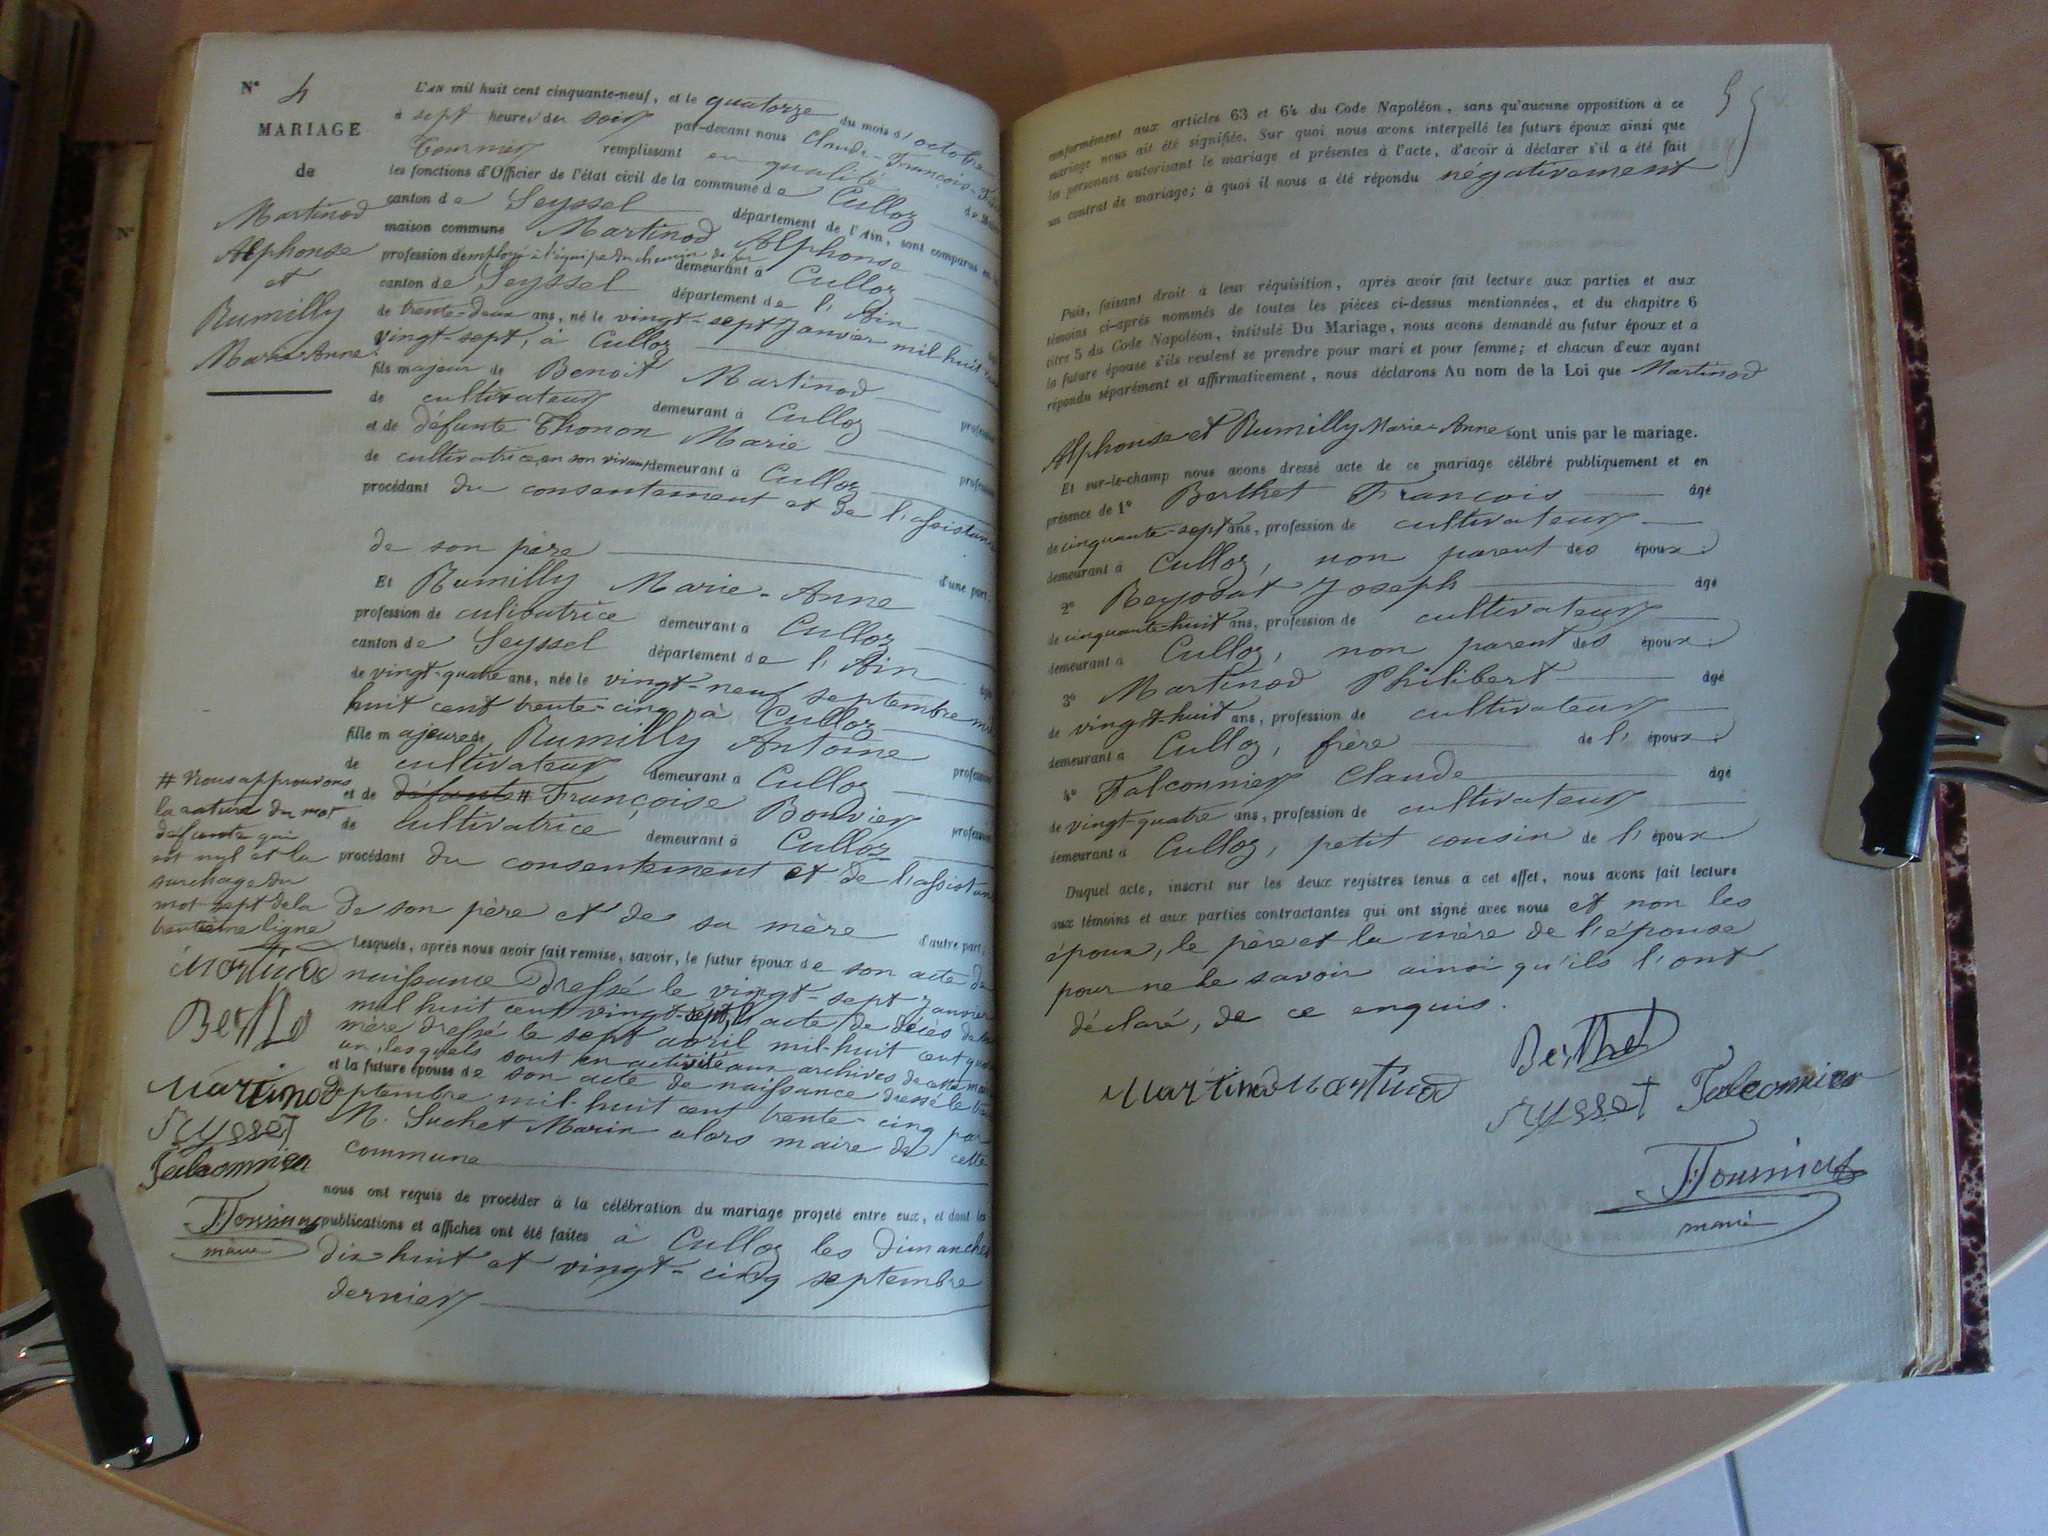 N° 4
MARIAGE
de
Martinod
Alphonse
et
Rumilly
Marie-Anne
L'AN mil huit cent cinquante-neuf, et le quatorze du mois d'octobre
à sept heures du soir par-devant nous Claude-François
remplissant en qualité
les fonctions d'Officier de l'état civil de la commune de Culloz
canton de Seyssel département de l'Ain, sont comparus en
maison commune Martinod Alphonse
profession d'employé à l'équipe du chemin de fer demeurant à Culloz
canton de Seyssel département de l'Ain
de trente-deux ans, né le vingt-sept janvier mil huit cent
vingt-sept, à Culloz
fils majeur de Benoit Martinod
de cultivateur demeurant à Culloz
et de défunte Thonon Marie profession
de cultivatrice, en son vivant demeurant à Culloz
procédant du consentement et de l'assistance
de son père d'une part.
Et Rumilly Marie-Anne
profession de culivatrice demeurant à Culloz
canton de Seyssel département de l'Ain
de vingt-quatre ans, née le vingt-neuf septembre mil
huit cent trente-cinq, à Culloz
fille majeure de Rumilly Antoine
de cultivateur demeurant à Culloz
et de défunte # Françoise Bouvier
de cultivatrice demeurant à Culloz
procédant du consentement et de l'assistance
de son père et de sa mère d'autre part,
Lesquels, après nous avoir fait remise, savoir, le futur époux de son acte de
naissance dressé le vingt-sept janvier
mil huit cent vingt-sept, l'acte de décès de sa
mère dressé le sept avril mil-huit cent
un, lesquels sont en activité aux archives de cette
et la future épouse de son acte de naissance dressé le
septembre mil-huit cent trente-cinq par
M. Suchet Marin alors maire de cette
commune
nous ont requis de procéder à la célébration du mariage projeté entre eux, et dont les
publications et affiches ont été faites à Culloz les dimanches
dix-huit et vingt-cinq septembre
dernier
# nous approuvons
la rature du mot
défunte qui
est nul et la
surchage du
mot sept de la
trentième ligne
Martinod
Berthet
Martinod
Falconnier
maire
conformément aux articles 63 et 64 du Code Napoléon, sans qu'aucune opposition à ce
mariage nous ait été signifiée. Sur quoi nous avons interpellé les futurs époux ainsi que
les personnes autorisant le mariage et présentes à l'acte, d'avoir à déclarer s'il a été fait
un contrat de mariage; à quoi il nous a été répondu négativement
Puis, faisant droit à leur réquisition, après avoir fait lecture aux parties et aux
témoins ci-après nommés de toutes les pièces ci-dessus mentionnées, et du chapitre 6
titre 5 du Code Napoléon, intitulé Du Mariage, nous avons demandé au futur époux et à
la future épouse s'ils veulent se prendre pour mari et pour femme; et chacun d'eux ayant
répondu séparément et affirmativement, nous déclarons Au nom de la Loi que Martinod
Alphonse et Rumilly Marie-Anne sont unis par le mariage.
Et sur-le-champ nous avons dressé acte de ce mariage célébré publiquement et en
présence de 1° Berthet François âgé
de cinquante-sept ans, profession de cultivateur
demeurant à Culloz, non parent des époux:
2° Joseph âgé
de cinquante-huit ans, profession de cultivateur
demeurant à Culloz, non parent des époux:
3° Martinod Philibert âgé
de vingt-huit ans, profession de cultivateur
demeurant à Culloz, frère de l'époux:
4° Falconnier Claude âgé
de vingt-quatre ans, profession de cultivateur
demeurant à Culloz, petit cousin de l'époux
Duquel acte, inscrit sur les deux registres tenus à cet effet, nous avons fait lecture
aux témoins et aux parties contractantes qui ont signé avec nous et non les
époux, le père et la mère de l'épouse
pour ne le savoir ainsi qu'ils l'ont
déclaré, de ce enquis.
Berthet
Martinod Martinod
Falconnier
maire